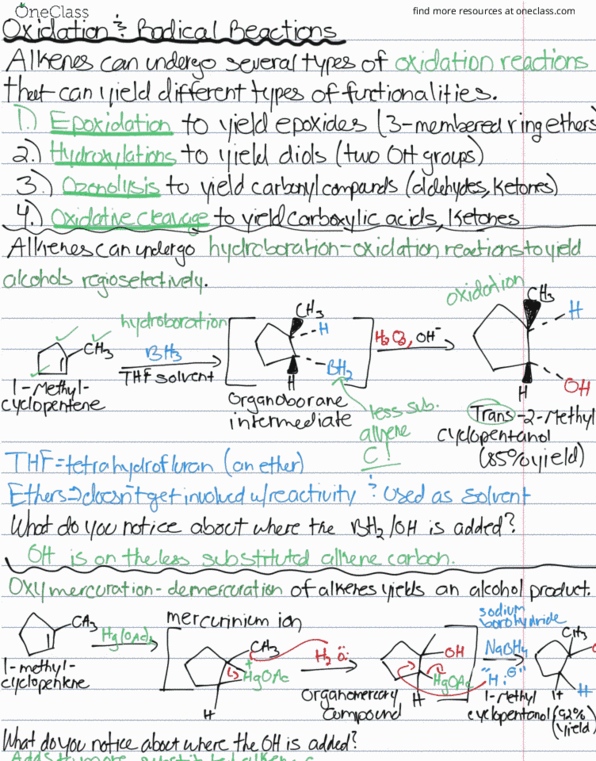 OneClass
find more resources at oneclass.com
Oxidation & Radical Reactions
Alkenes can undergo several types of oxidation reactions
that can yield different types of functionalities.
1.) Epoxidation to yield epoxides (3-membered ring ethers
2.) Hydroxylations to yield diols (two OH groups)
3.) Ozonolysis to yield carbonyl compands (aldehydes, Ketones)
4.) Oxidative cleavage to yield carboxylic acids, Ketones
Alkenes can undergo hydroboration-oxidation reactions to yield
alcohols regioselectively.
hydroboration
oxidation
CH3
BH3
THF solvent
CH3
H
BH2
H
H2O2, OH-
CH3
H
H
OH
1-Methyl-
cyclopentene
Organoborane
intermediate
less sub.
alkene
C!
Trans-2-Methyl
cyclopentanol
(85% yield)
THF = tetrahydrofuran (an ether)
Ethers → doesn't get involved w/reactivity & used as solvent
What do you notice about where the BH2/OH is added?
OH is on the less substituted alkene carbon.
Oxymercuration-demercuration of alkenes yields an alcohol product.
CH3
Hg(OAc)2
mercurinium ion
CH3
+
HgOAc
H
H2O:
OH
HgOAc
H
sodium
borohydride
NaBH4
"H:⊖"
CH3
H
1-methyl-
cyclopentene
Organomercury
Compound
1-Methyl
cyclopentanol (92%
yield)
What do you notice about where the OH is added?